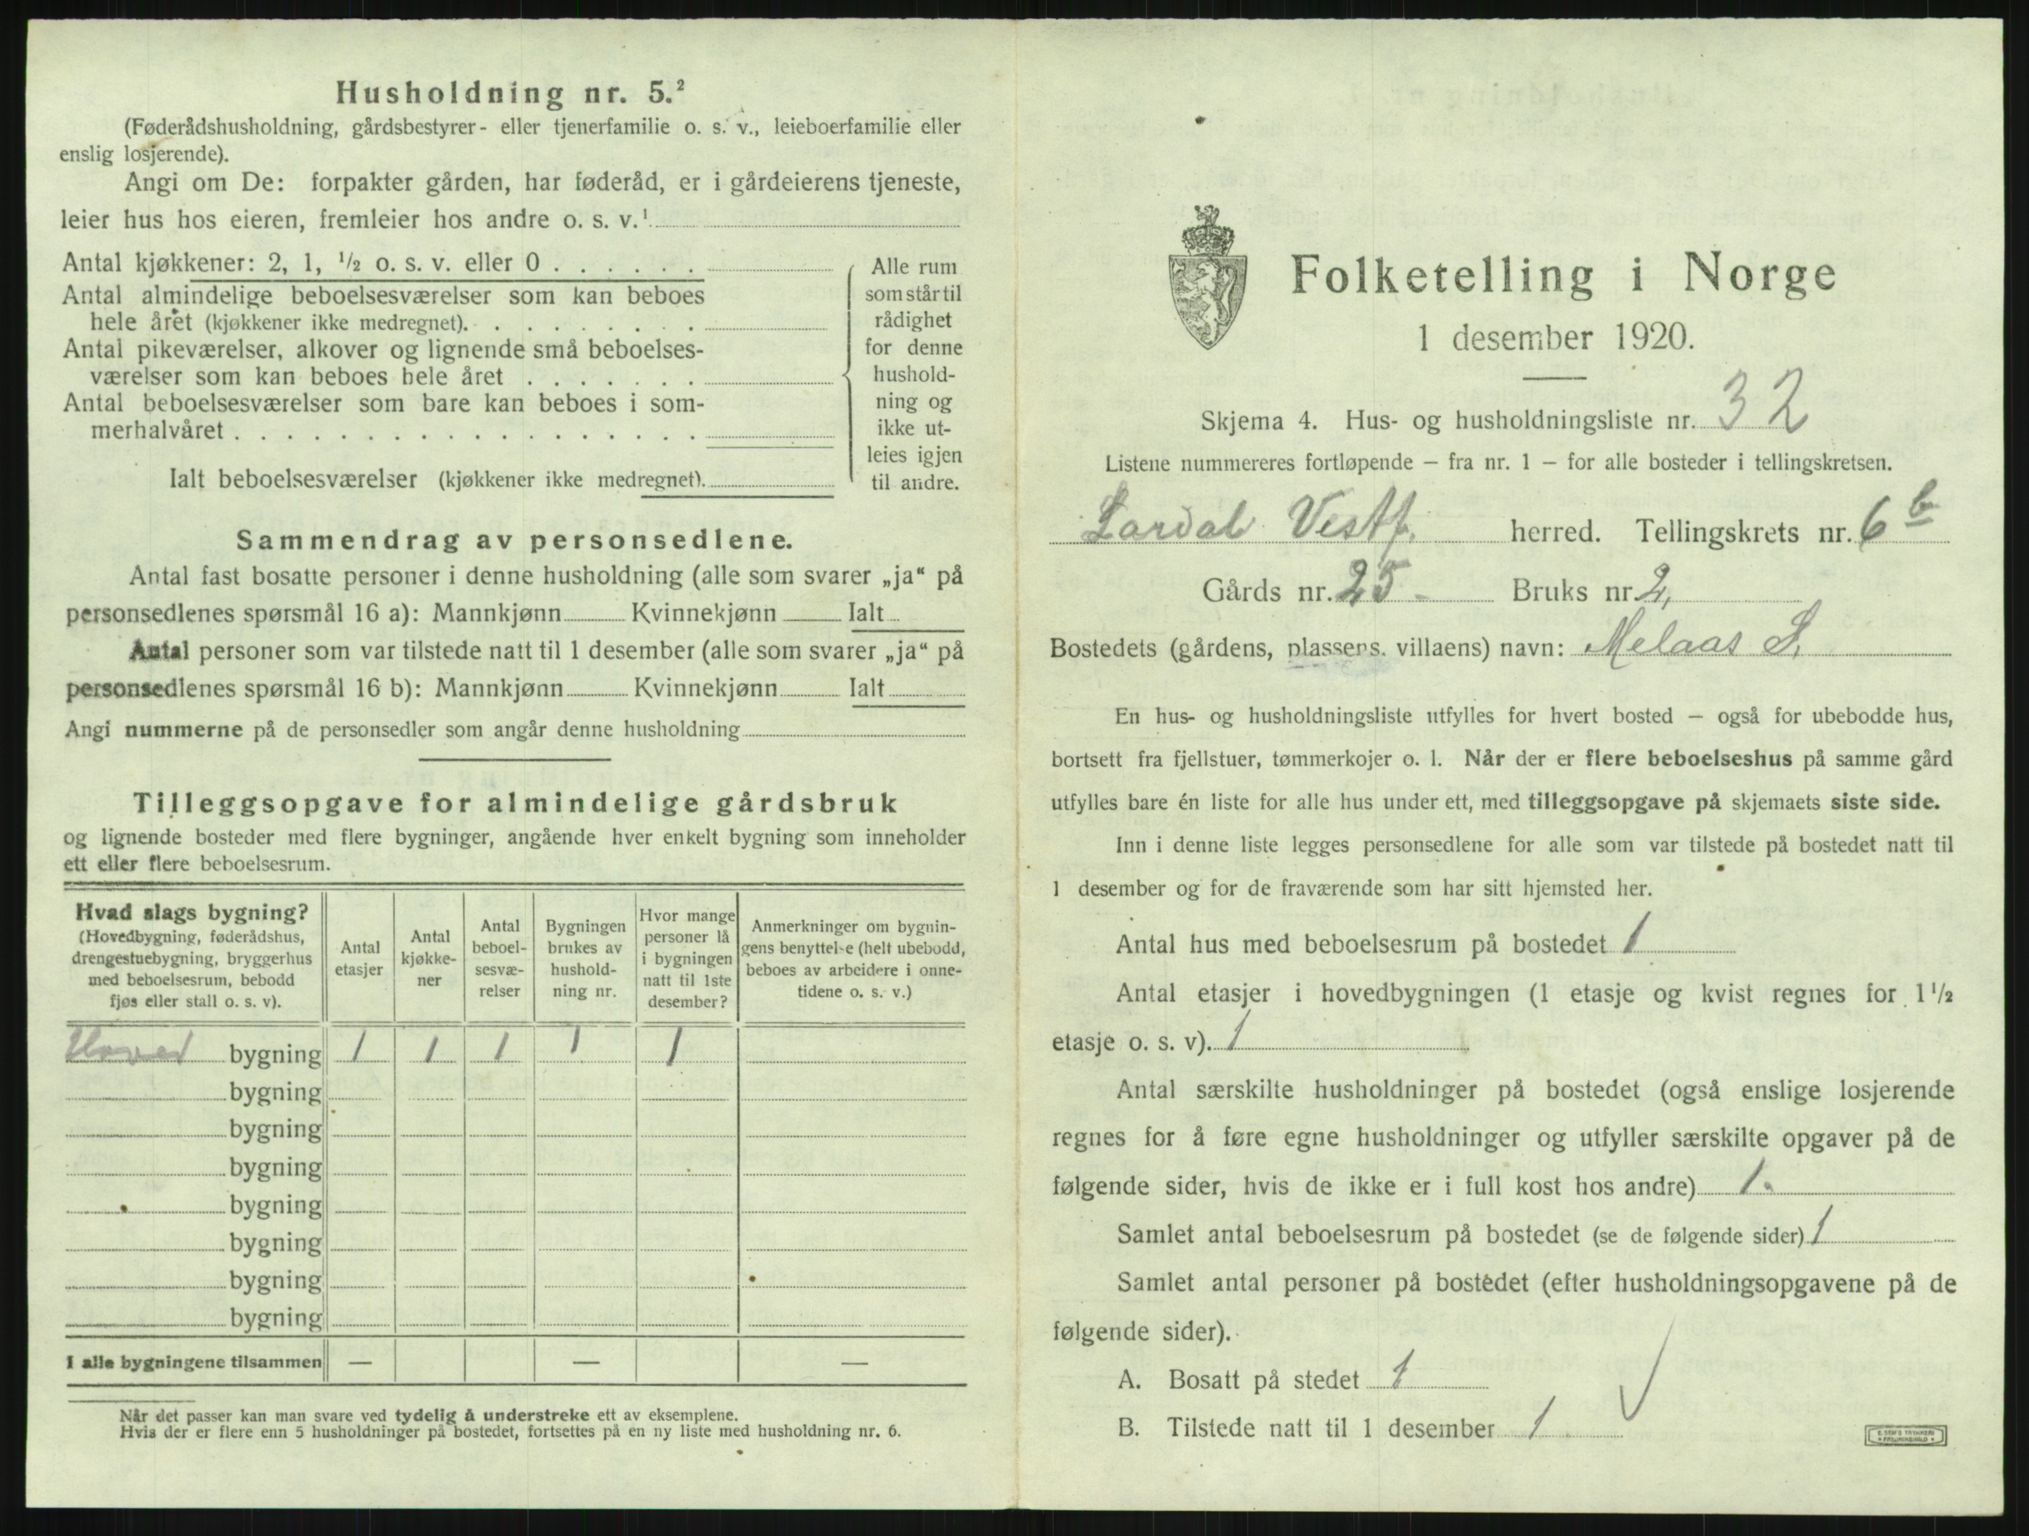 Husholdning nr. 5.²
(Føderådshusholdning, gårdsbestyrer- eller tjenerfamilie o. s. v., leieboerfamilie eller
enslig losjerende).
Angi om De: forpakter gården, har føderåd, er i gårdeierens tjeneste,
leier hus hos eieren, fremleier hos andre o. s. v.¹
Antal kjøkkener: 2, 1, ½ o. s. v. eller 0 . . . . . .
Antal almindelige beboelsesværelser som kan beboes
hele året (kjøkkener ikke medregnet). . . . . . . . .
Antal pikeværelser, alkover og lignende små beboelses-
værelser som kan beboes hele året . . . . . . .
Antal beboelsesværelser som bare kan beboes i som-
merhalvåret . . . . . . . . . . . . . . . . . .
Ialt beboelsesværelser (kjøkkener ikke medregnet).
Alle rum
som står til
rådighet
for denne
hushold-
ning og
ikke ut-
leies igjen
til andre.
Sammendrag av personsedlene.
Antal fast bosatte personer i denne husholdning (alle som svarer „ja“ på
personsedlenes spørsmål 16 a): Mannkjønn Kvinnekjønn Ialt
Antal personer som var tilstede natt til 1 desember (alle som svarer „ja“ på
personsedlenes spørsmål 16 b): Mannkjønn Kvinnekjønn Ialt
Angi nummerne på de personsedler som angår denne husholdning
Tilleggsopgave for almindelige gårdsbruk
og lignende bosteder med flere bygninger, angående hver enkelt bygning som inneholder
ett eller flere beboelsesrum.
Hvad slags bygning?
(Hovedbygning, føderådshus,
drengestuebygning, bryggerhus
med beboelsesrum, bebodd
fjøs eller stall o. s. v).
Antal
etasjer
Antal
kjøkke-
ner
Antal
beboel-
sesvæ-
relser
Bygningen
brukes av
hushold-
ning nr.
Hvor mange
personer lå
i bygningen
natt til 1ste
desember?
Anmerkninger om bygnin-
gens benyttelse (helt ubebodd,
beboes av arbeidere i onne-
tidene o. s. v.)
Hoved bygning 1 1 1 1 1
bygning
bygning
bygning
bygning
bygning
bygning
bygning
I alle bygningene tilsammen — — —
Når det passer kan man svare ved tydelig å understreke ett av eksemplene.
Hvis der er flere enn 5 husholdninger på bostedet, fortsettes på en ny liste med husholdning nr. 6.
Folketelling i Norge
1 desember 1920.
Skjema 4. Hus- og husholdningsliste nr. 32
Listene nummereres fortløpende — fra nr. 1 — for alle bosteder i tellingskretsen.
Lardal Vestf. herred. Tellingskrets nr. 6 b
Gårds nr. 25 Bruks nr 2,
Bostedets (gårdens, plassens, villaens) navn: Melaas S.
En hus- og husholdningsliste utfylles for hvert bosted — også for ubebodde hus,
bortsett fra fjellstuer, tømmerkojer o. l. Når der er flere beboelseshus på samme gård
utfylles bare én liste for alle hus under ett, med tilleggsopgave på skjemaets siste side.
Inn i denne liste legges personsedlene for alle som var tilstede på bostedet natt til
1 desember og for de fraværende som har sitt hjemsted her.
Antal hus med beboelsesrum på bostedet 1
Antal etasjer i hovedbygningen (1 etasje og kvist regnes for 1½
etasje o. s. v). 1
Antal særskilte husholdninger på bostedet (også enslige losjerende
regnes for å føre egne husholdninger og utfyller særskilte opgaver på de
følgende sider, hvis de ikke er i full kost hos andre) 1.
Samlet antal beboelsesrum på bostedet (se de følgende sider) 1
Samlet antal personer på bostedet (efter husholdningsopgavene på de
følgende sider).
A. Bosatt på stedet 1
B. Tilstede natt til 1 desember 1